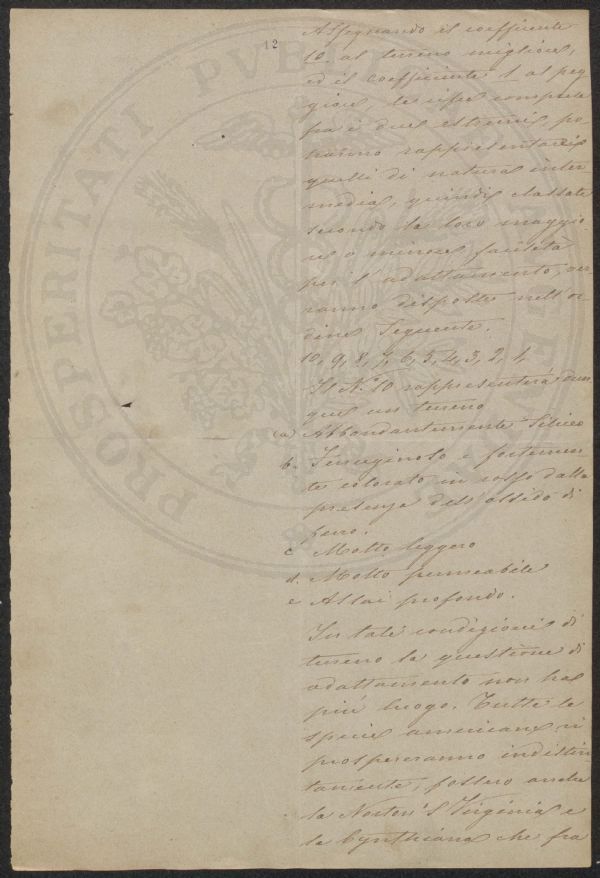 12
Assegnando il coefficiente
10 al terreno migliore,
ed il coefficiente 1 al peg
giore, le cifre comprese
fra i due estremi, po
tranno rappresentare
quelli di natura inter
media, quindi classate
secondo la loro maggio
re o minore facilità
per l'adattamento, ver
ranno disposte nell'or
dine seguente.
10, 9, 8, 7, 6, 5, 4, 3, 2, 1,
Il N.º 10 rappresenterà dun
que un terreno
a Abbondantemente Siliceo
b. Feruginoso e fortemen
te colorato in rosso dalla
presenza dell'ossido di
ferro.
c Molto leggero
d. Molto permeabile
e Assai profondo.
In tali condizioni di
terreno la questione di
adattamento non ha
più luogo. Tutte le
specie americane vi
prospereranno indistin
tamente, fossero anche
la Norton's Virginia e
la Cynthiana che fra
PROSPERITATI PVBLI